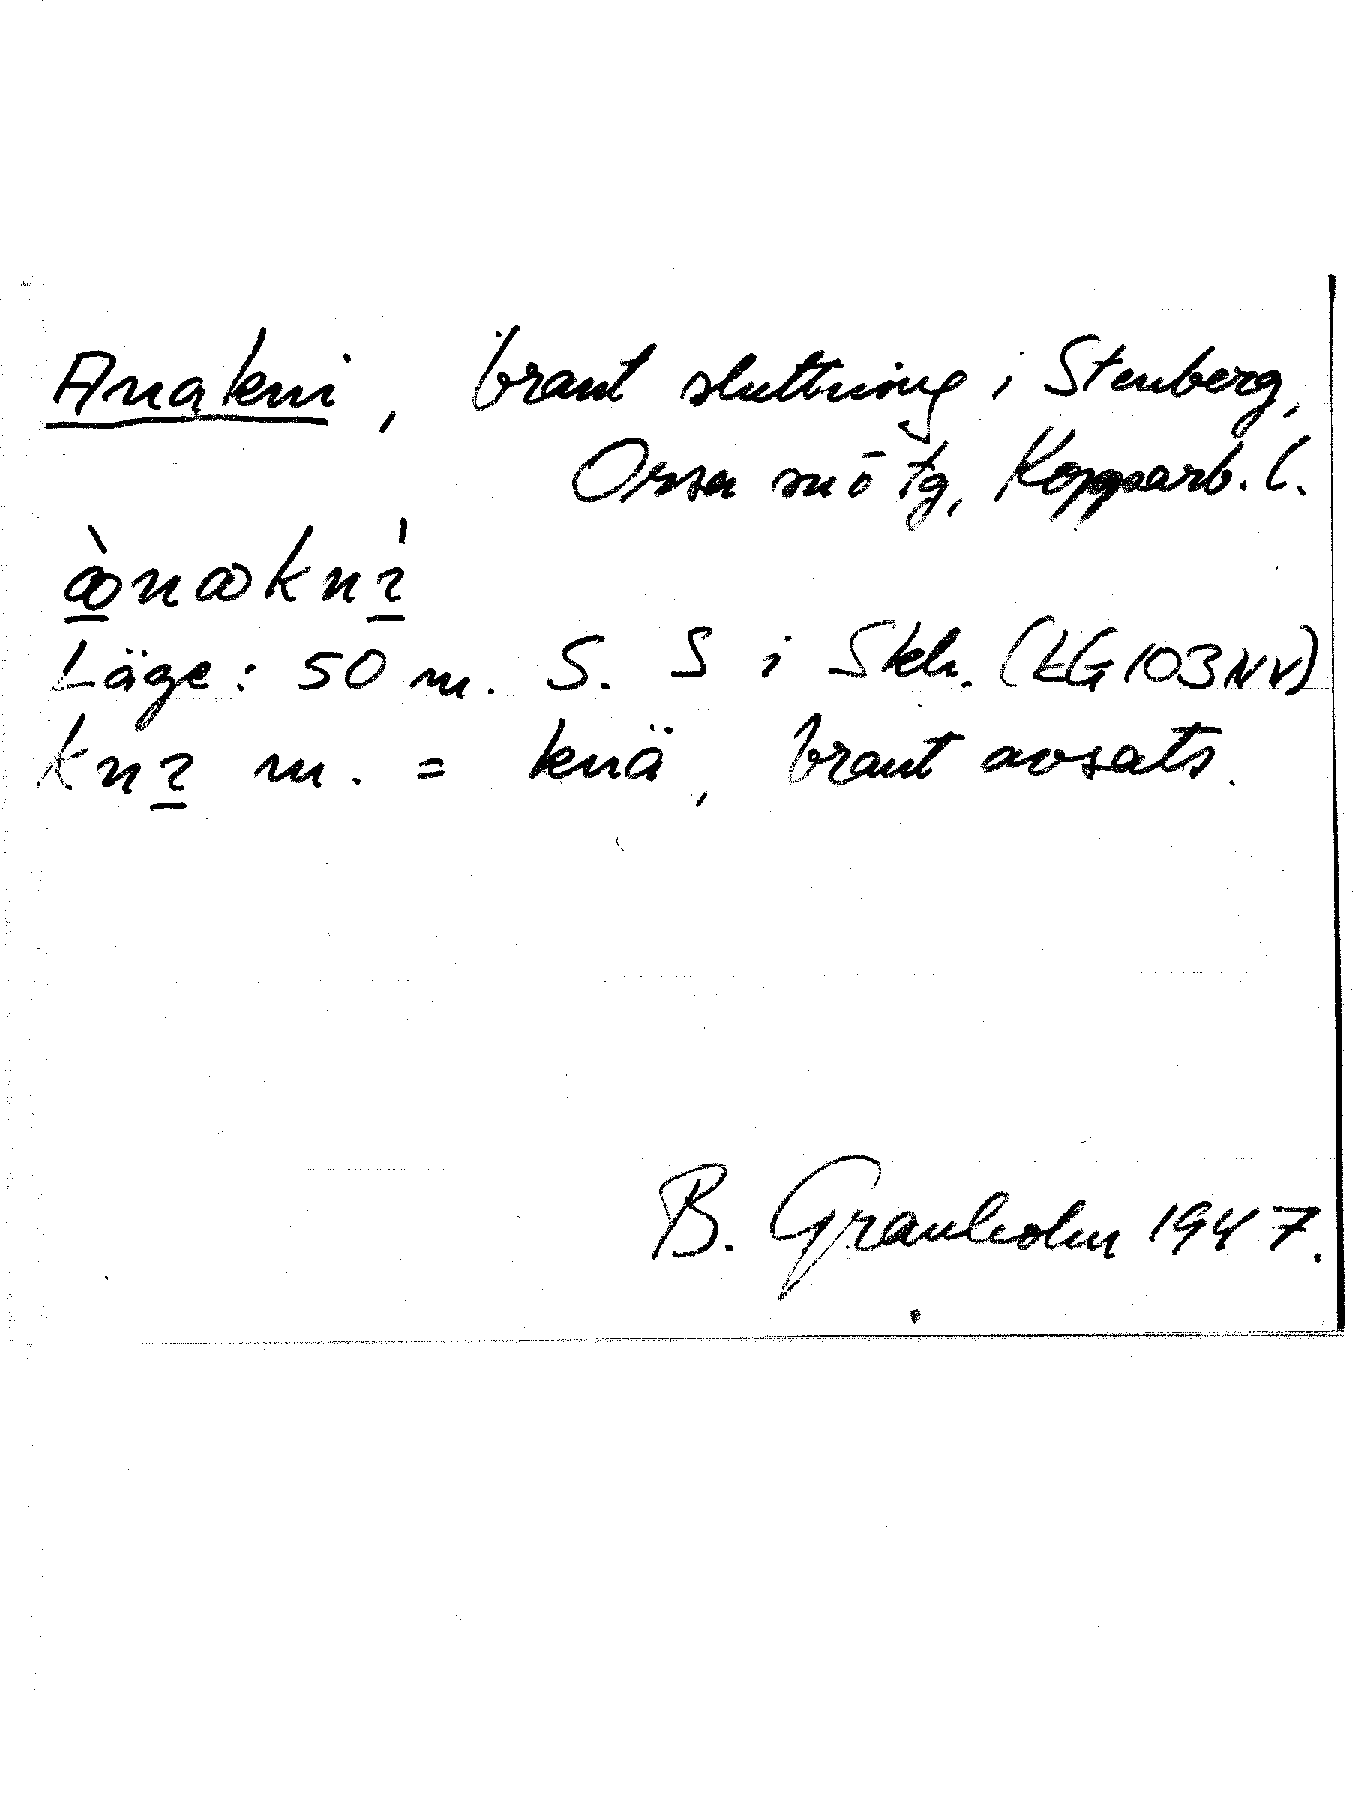 Anakni, brant sluttning i Stenberg,
Orsa snö tg, Kopparb. l.
Läge: 50 m. S. S i Skh. (LG 103 NV)
m. = knä, brant avsats.
B. Granholm 1947.